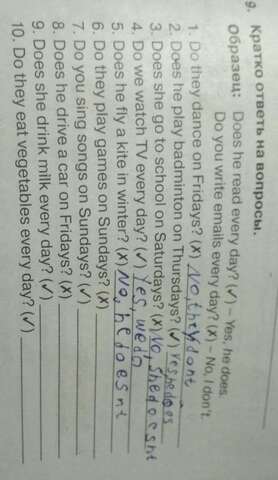 9. Кратко ответь на вопросы.
Образец: Does he read every day? (✓) – Yes, he does.
Do you write emails every day? (X) – No, I don't.
1. Do they dance on Fridays? (X) No, they dont
2. Does he play badminton on Thursdays? (✓) Yes he does
3. Does she go to school on Saturdays? (X) No, she doesnt
4. Do we watch TV every day? (✓) Yes, we do
5. Does he fly a kite in winter? (X) No, he doesnt
6. Do they play games on Sundays? (X)
7. Do you sing songs on Sundays? (✓)
8. Does he drive a car on Fridays? (X)
9. Does she drink milk every day? (✓)
10. Do they eat vegetables every day? (✓)